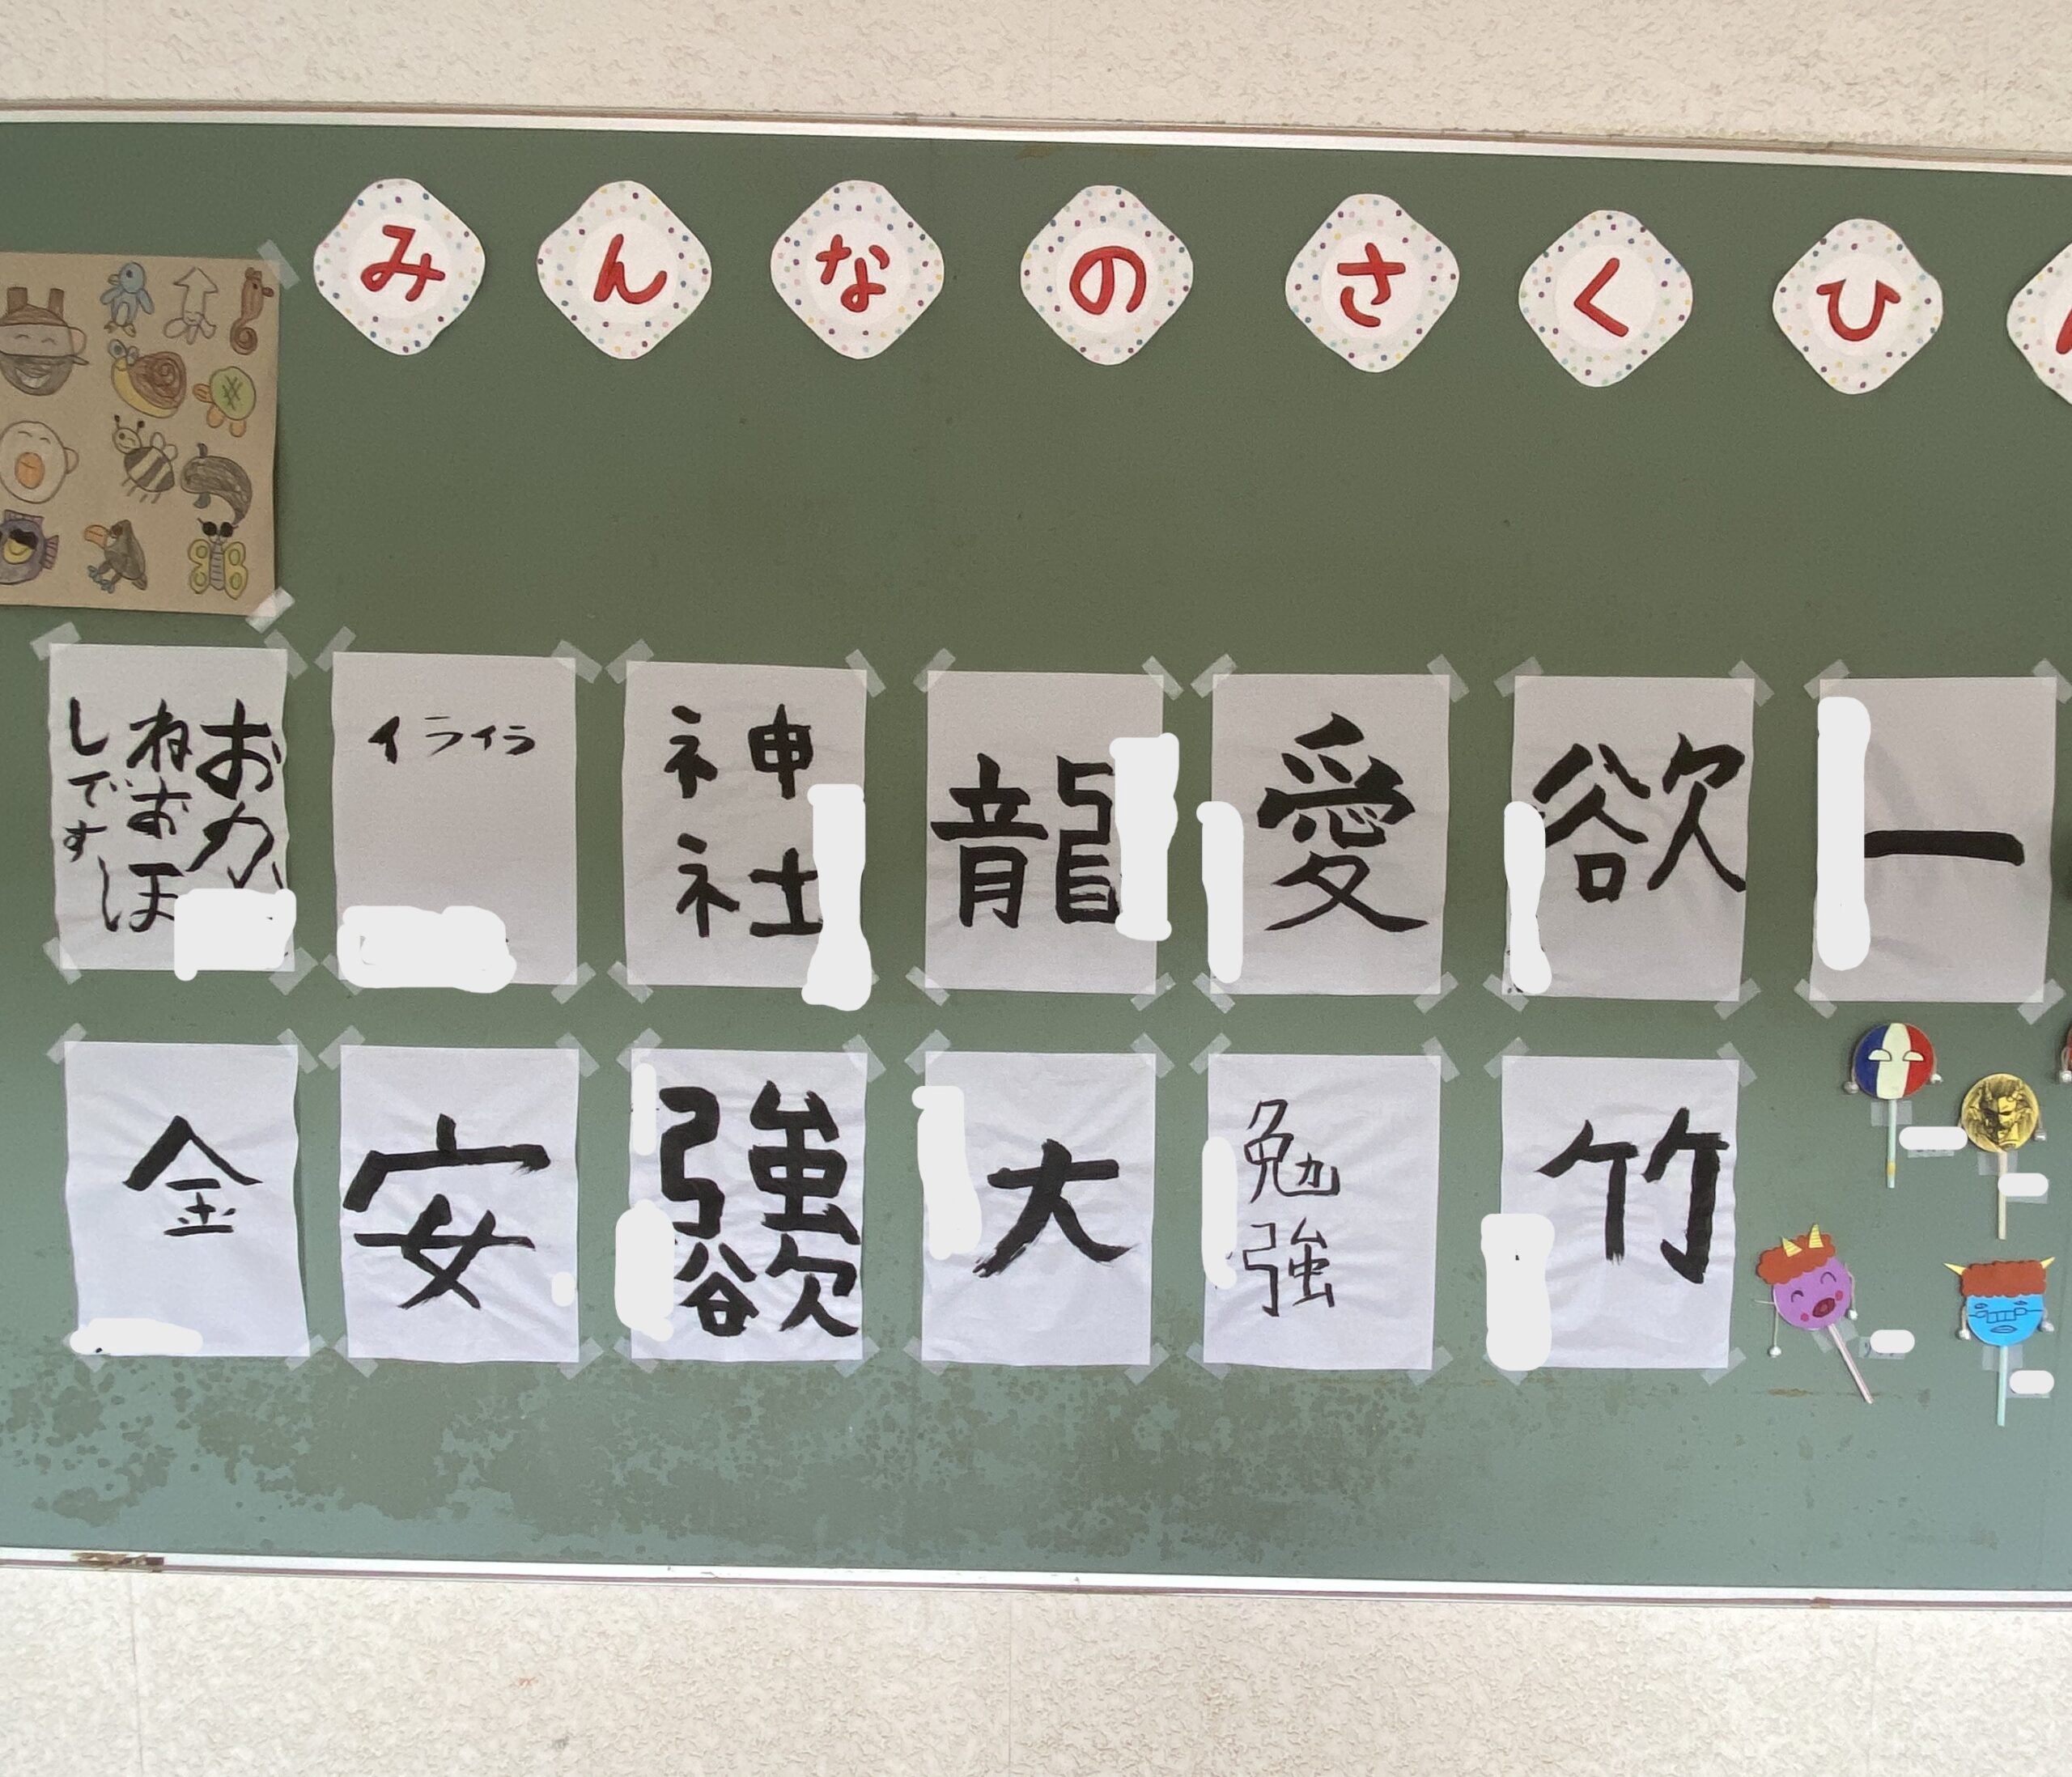 みんなのさくひ
おか
ねおほ
しです
イライラ
神社
龍
愛
欲
一
金
安
強欲
大
勉強
竹